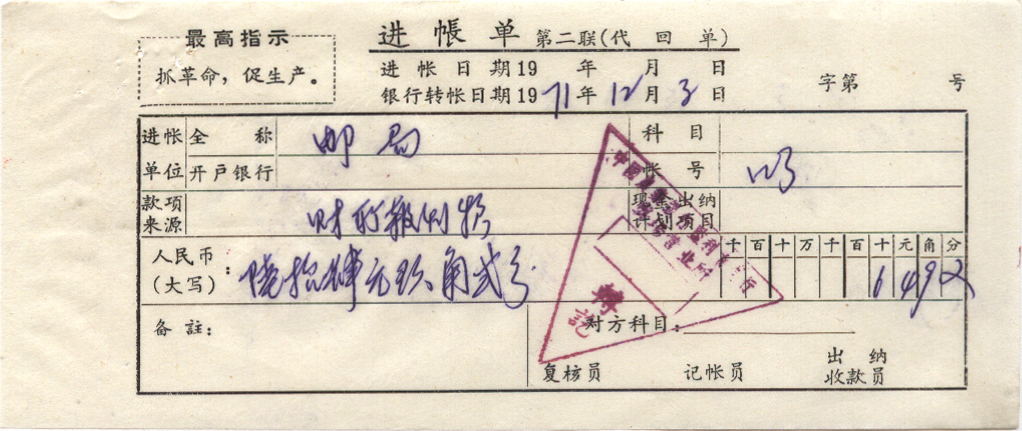 最高指示
抓革命，促生产。
进帐单 第二联(代回单)
进帐日期19 年 月 日
银行转帐日期1971年12月3日
字第 号
进帐单位 全称 邮局 科目
开户银行 帐号
款项来源 现金出纳计划项目
人民币(大写)： 陆拾肆元玖角贰分
千百十万千百十元角分
6492
备註：
对方科目：
复核员 记帐员 出纳收款员
转
记